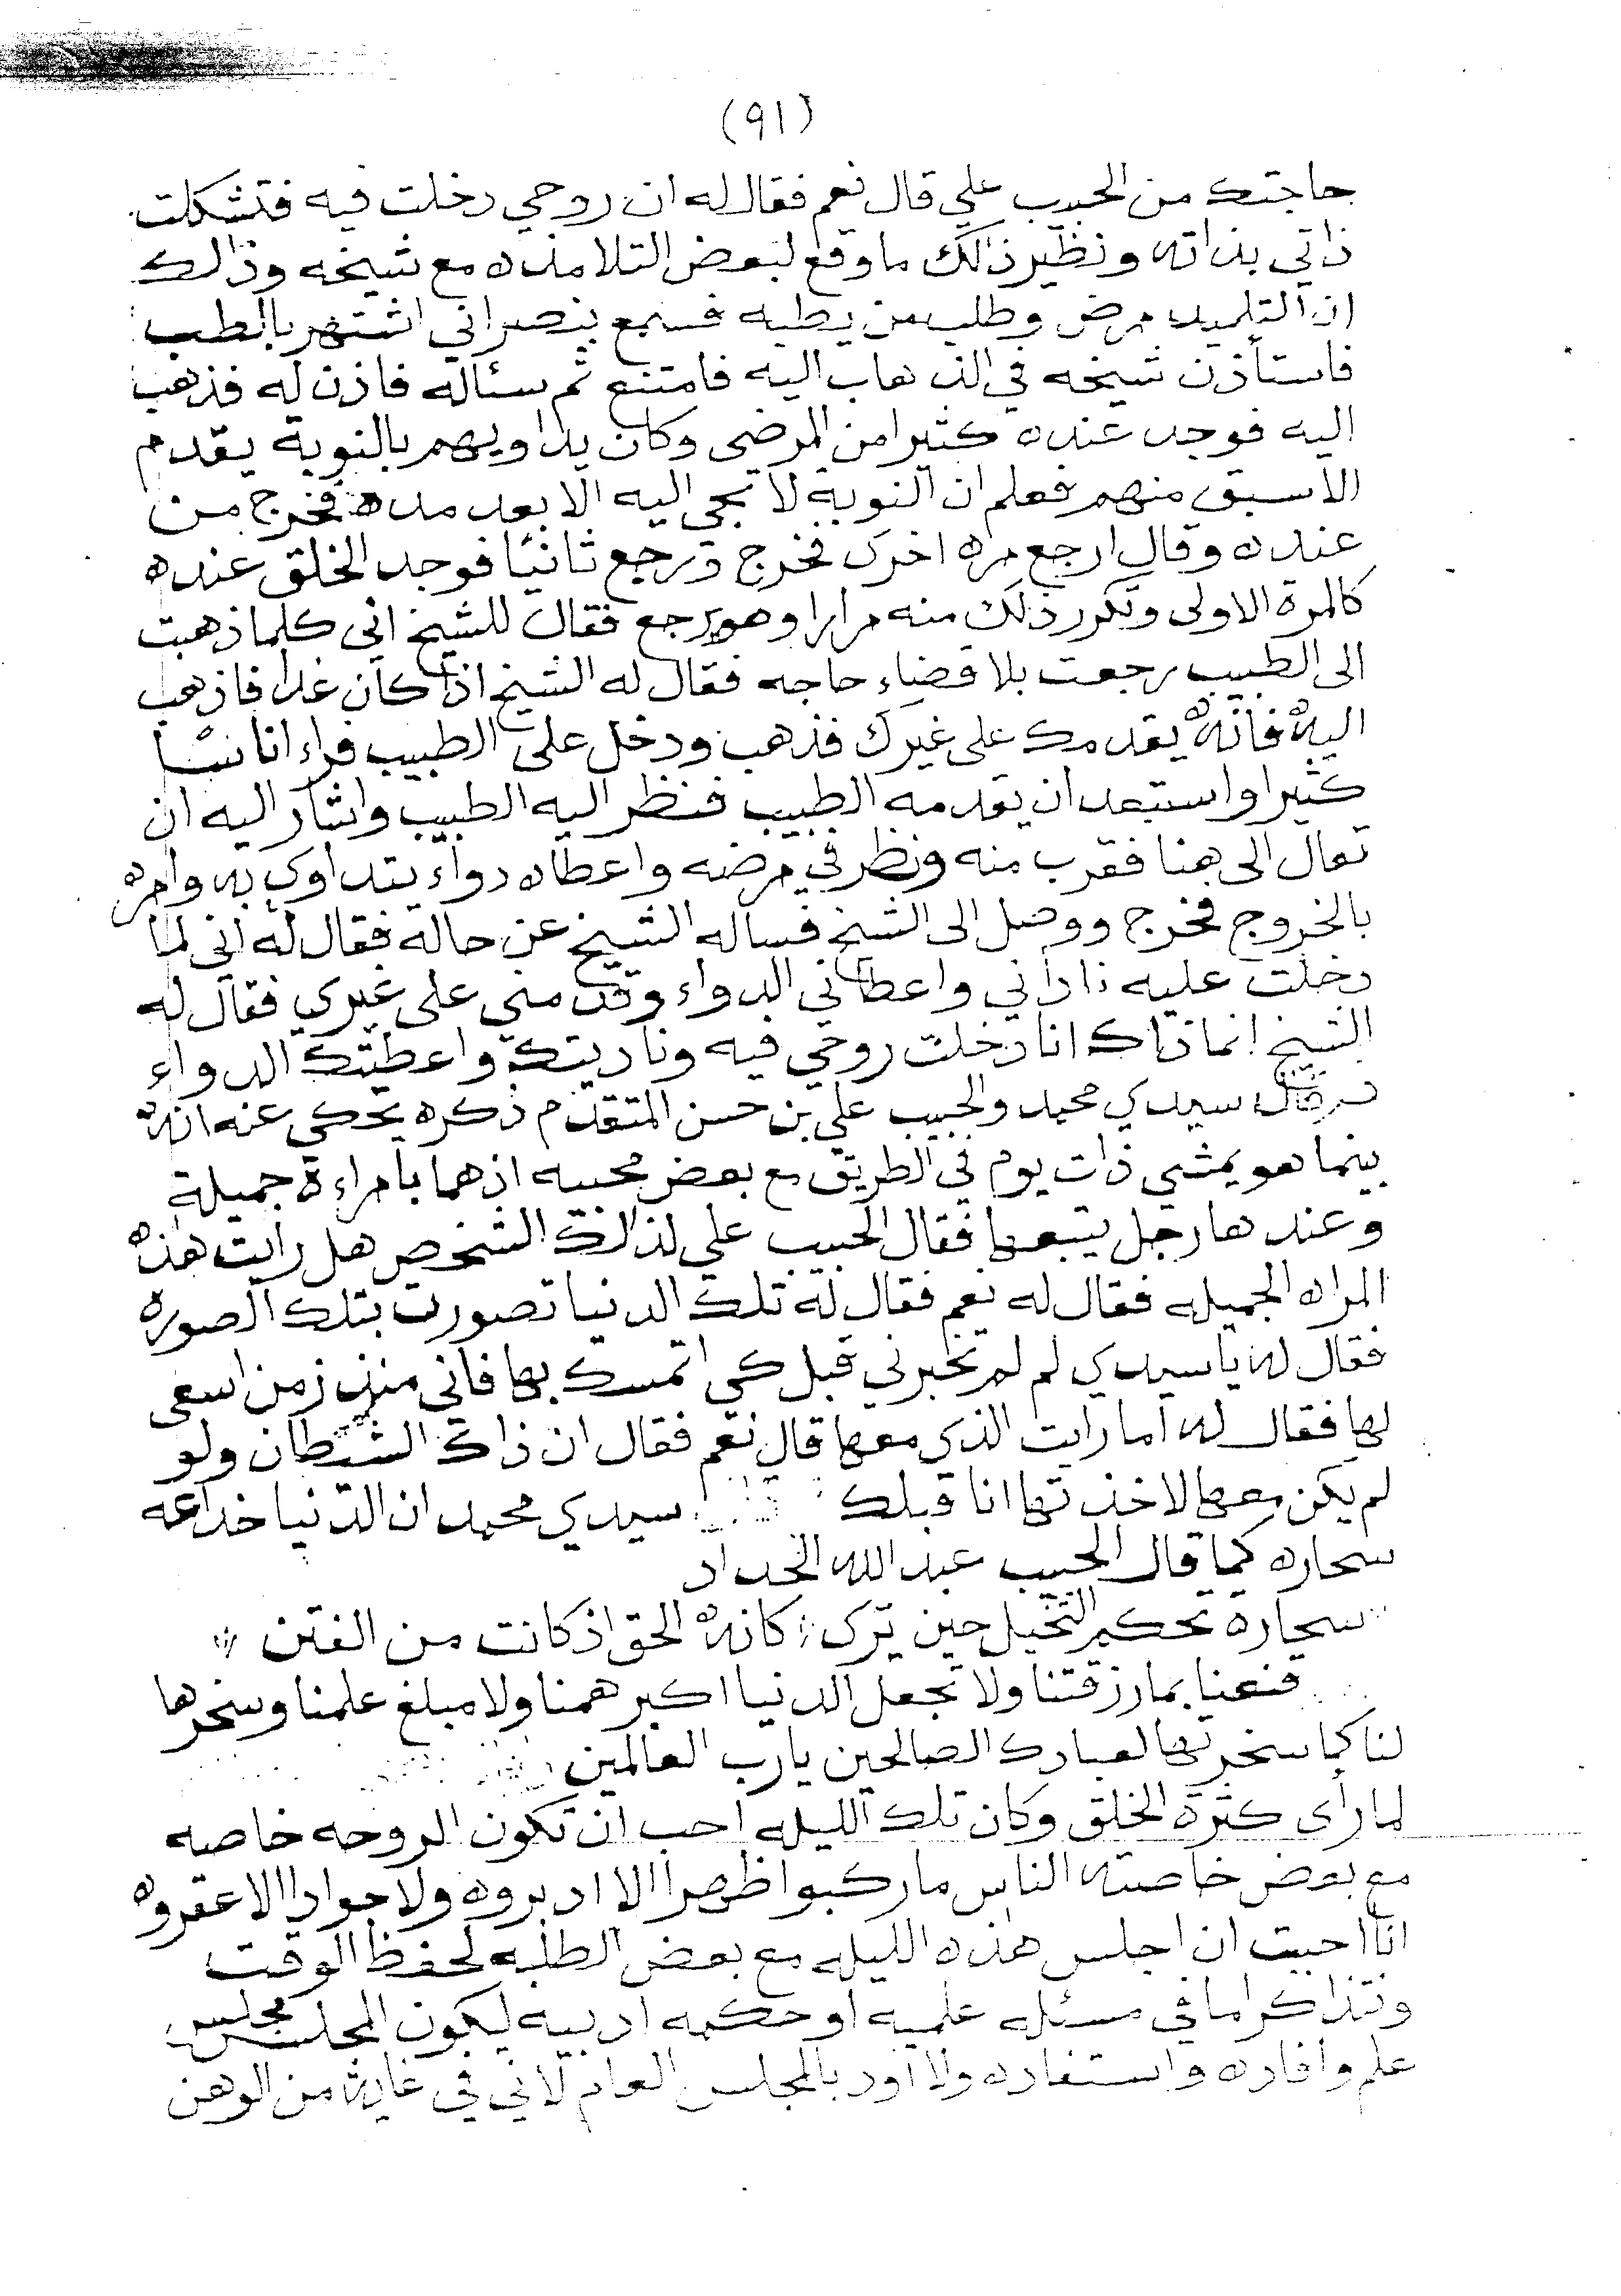 (٩١)
حاجتك من الحبيب علي قال نعم فقال له ان روحي دخلت فيه فتشكلت
ذاتي بذاته ونظير ذالك ما وقع لبعض التلامذه مع شيخه وذالك
ان التلميذ مرض وطلب من يطبه فسمع بنصراني اشتهر بالطب
فاستأذن شيخه في الذهاب اليه فامتنع ثم سئاله فاذن له فذهب
اليه فوجد عنده كثيرا من المرضى وكان يداويهم بالنوبة يقدم
الاسبق منهم فعلم ان النوبة لا تجي اليه الا بعد مده فخرج من
عنده وقال ارجع مره اخرى فخرج ورجع ثانيا فوجد الخلق عنده
كالمرة الاولى وتكرر ذلك منه مرارا وهو يرجع فقال للشيخ اني كلما ذهبت
الى الطبيب رجعت بلا قضاء حاجه فقال له الشيخ اذا كان غدا فاذهب
اليه فانه يقدمك على غيرك فذهب ودخل على الطبيب فراء اناسا
كثيرا واستبعد ان يقدمه الطبيب فنظر اليه الطبيب واشار اليه ان
تعال الى هنا فقرب منه ونظر في مرضه واعطاه دواء يتداوى به وامره
بالخروج فخرج ووصل الى الشيخ فساله الشيخ عن حاله فقال له اني لما
دخلت عليه ناداني واعطاني الدواء وقدمني على غيري فقال له
الشيخ انما ذاك انا دخلت روحي فيه وناديتك واعطيتك الدواء
قال سيدي محمد والحبيب علي بن حسن المتقدم ذكره يحكي عنه انه
بينما هو يمشي ذات يوم في الطريق مع بعض محبيه اذ هما بامراءة جميلة
وعندها رجل يتبعها فقال الحبيب علي لذالك الشخص هل رايت هذه
المراه الجميله فقال له نعم فقال له تلك الدنيا تصورت بتلك الصوره
فقال له يا سيدي لم لم تخبرني قبل كي اتمسك بها فاني منذ زمن اسعى
لها فقال له اما رايت الذي معها قال نعم فقال ان ذاك الشيطان ولو
لم يكن معها لاخذتها انا قبلك سيدي محمد ان الدنيا خداعه
سحاره كما قال الحبيب عبد الله الحداد
سحارة تحكم التخييل حين ترى كانه الحق اذ كانت من الفتن
قنعنا بما رزقتنا ولا تجعل الدنيا اكبر همنا ولا مبلغ علمنا وسخرها
لنا كما سخرتها لعبادك الصالحين يا رب العالمين
لما رأى كثرة الخلق وكان تلك الليله احب ان تكون الروحه خاصه
مع بعض خاصته الناس ما ركبوا ظهرا الا ادبروه ولا جوادا الا عقروه
انا احببت ان اجلس هذه الليله مع بعض الطلبه لحفظ الوقت
ونتذاكر اما في مسئله علميه او حكمه ادبيه ليكون المجلس مجلس
علم وافاده واستفاده ولا اود بالمجلس العام لاني في غاية من الوهن